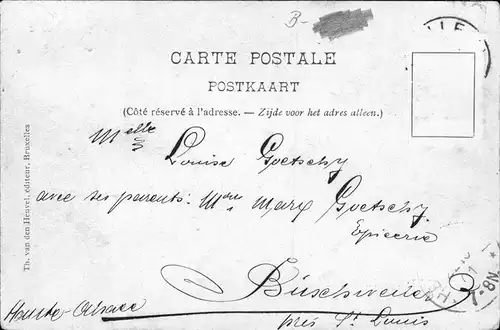 B-
CARTE POSTALE
POSTKAART
(Côté réservé à l'adresse. — Zijde voor het adres alleen.)
Melle
Louise Goetschy
avec ses parents: Mme Marx Goetschy.
Epicerie
Büschweiler
Haute-Alsace
près St Louis
Th. van den Heuvel, éditeur, Bruxelles
7-8N